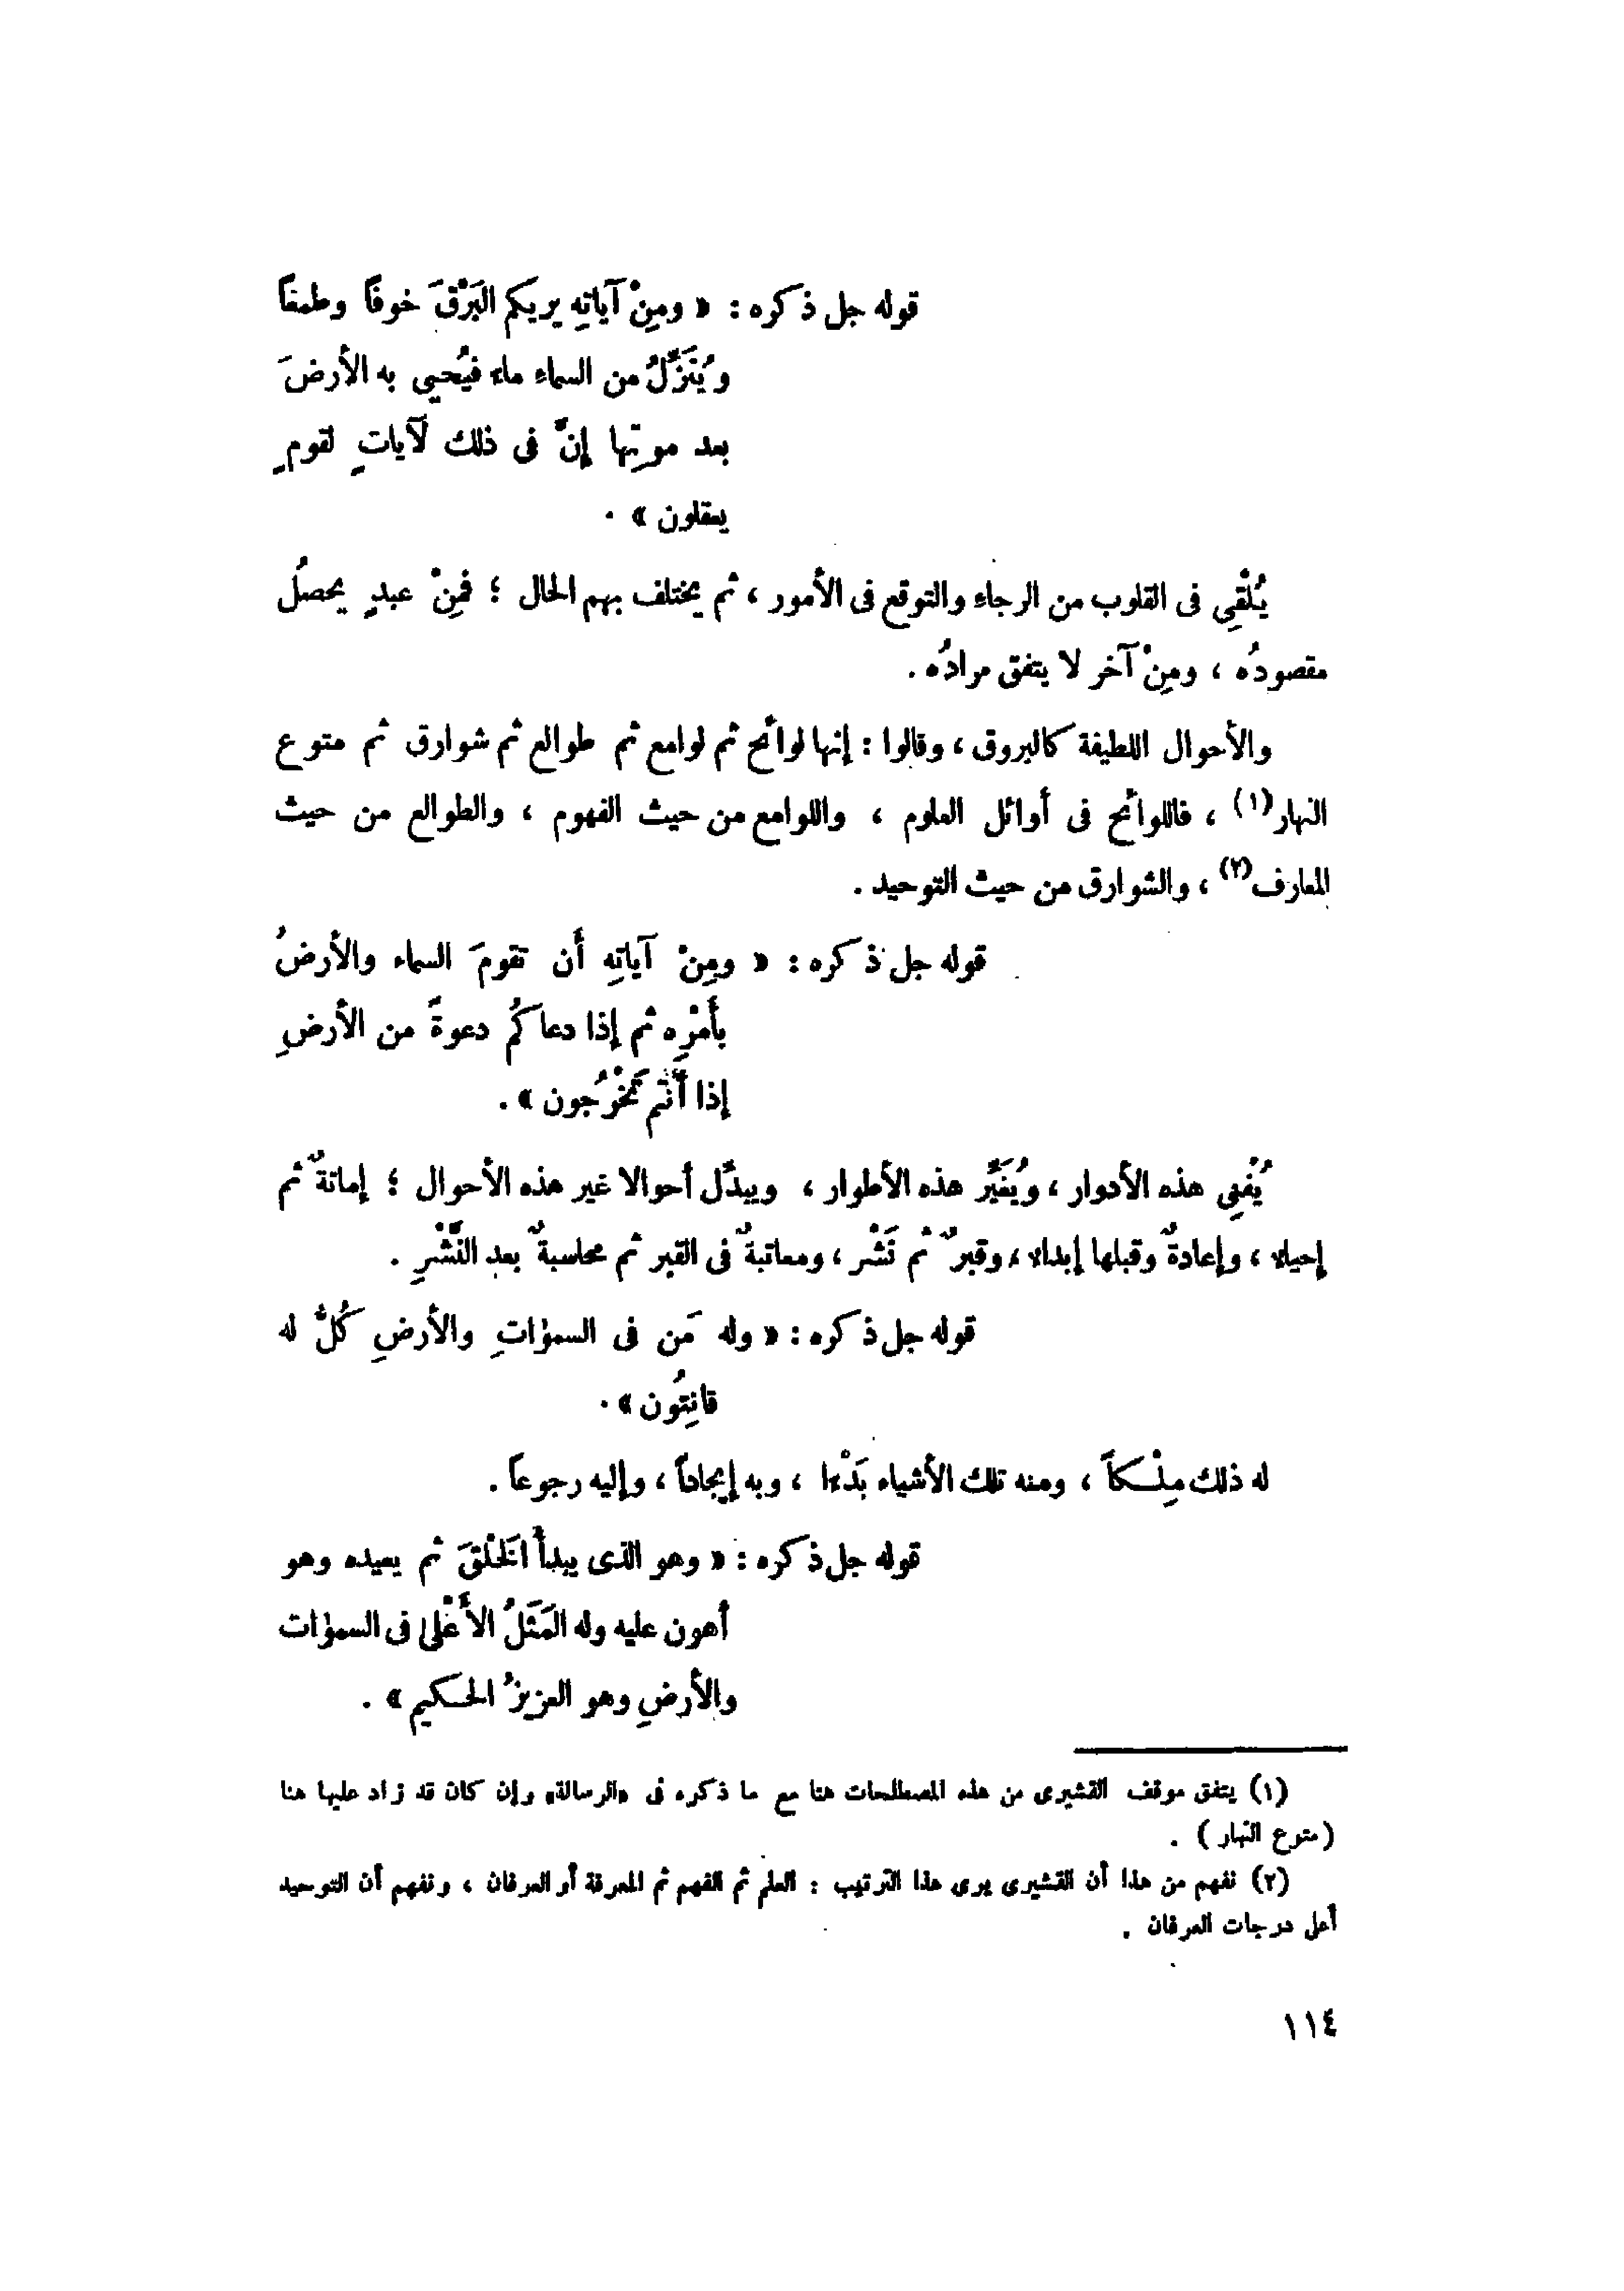 قوله جل ذكره : « ومِنْ آياتِه يريكم البَرْقَ خوفاً وطمعاً
ويُنَزِّلُ من السماء ماء فيُحيِى به الأرضَ
بعد موتِها إنَّ فى ذلك لَآياتٍ لقومٍ
يعقلون » .
يُلْقِى فى القلوب من الرجاء والتوقع فى الأمور ، ثم يختلف بهم الحال ؛ فمِنْ عبدٍ يحصلُ
مقصودُه ، ومِنْ آخر لا يتفق مرادُه .
والأحوال اللطيفة كالبروق ، وقالوا : إنها لوائح ثم لوامع ثم طوالع ثم شوارق ثم متوع
النهار(١) ، فاللوائح فى أوائل العلوم ، واللوامع من حيث الفهوم ، والطوالع من حيث
المعارف(٢) ، والشوارق من حيث التوحيد .
قوله جل ذكره : « ومِنْ آياتِه أن تقومَ السماء والأرضُ
بأَمْرِه ثم إذا دعاكُم دعوةً من الأرضِ
إذا أَنْتم تَخْرُجون » .
يُفْنِى هذه الأدوار ، ويُغَيِّر هذه الأطوار ، ويبدِّل أحوالا غير هذه الأحوال ؛ إماتةٌ ثم
إحياء ، وإعادةٌ وقبلها إبداء ، وقبرٌ ثم نَشْر ، ومعاتبةٌ فى القبر ثم محاسبةٌ بعد النَّشْرِ .
قوله جل ذكره : « وله مَن فى السمٰواتِ والأرضِ كُلٌّ له
قانِتُون » .
له ذلك مِلْكاً ، ومنه تلك الأشياء بَدْءا ، وبه إيجاداً ، وإليه رجوعاً .
قوله جل ذكره : « وهو الذى يبدأُ الخَلْقَ ثم يعيده وهو
أهون عليه وله المَثَلُ الأَعْلىٰ فى السمٰوات
والأرضِ وهو العزيزُ الحكيم » .
(١) يتفق موقف القشيرى من هذه المصطلحات هنا مع ما ذكره فى «الرسالة» وإن كان قد زاد عليها هنا
( متوع النهار ) .
(٢) نفهم من هذا أن القشيرى يرى هذا الترتيب : العلم ثم الفهم ثم المعرفة أو العرفان ، ونفهم أن التوحيد
أعلى درجات العرفان .
١١٤